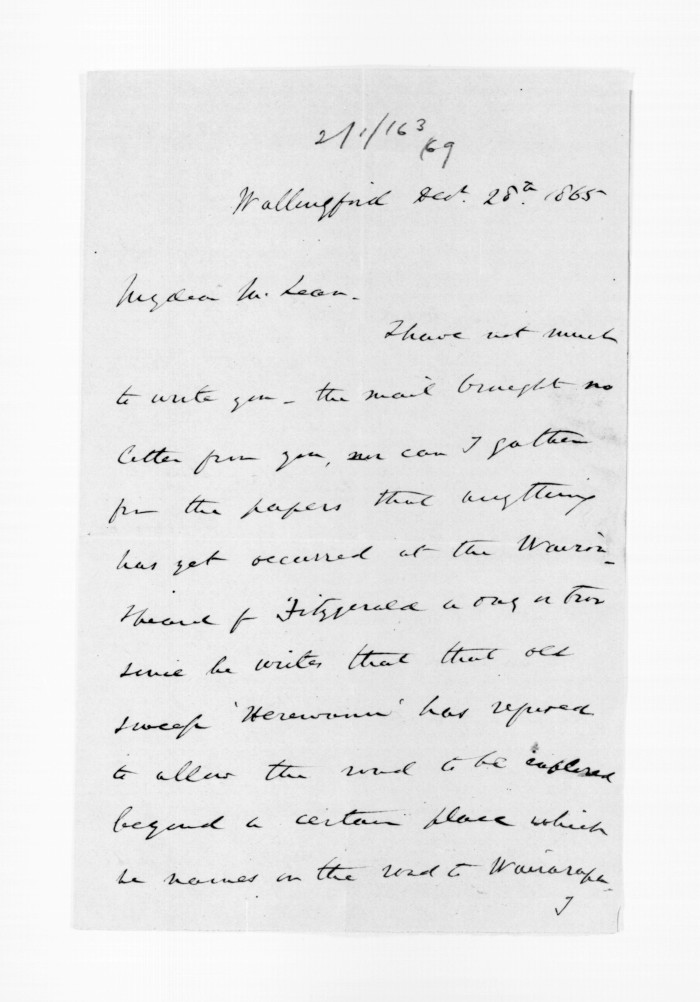 2/1/163
/69
Wallingford Decr. 28th. 1865
My dear McLean.
I have not much
to write you _ the mail brought no
letter from you, nor can I gather
from the papers that anything
has yet occurred at the Wairoa _
I heard fr Fitzgerald a day or two
since he writes that that old
sweep 'Herewanui' has refused
to allow the road to be explored
beyond a certain place which
he names on the road to Wairarapa
I